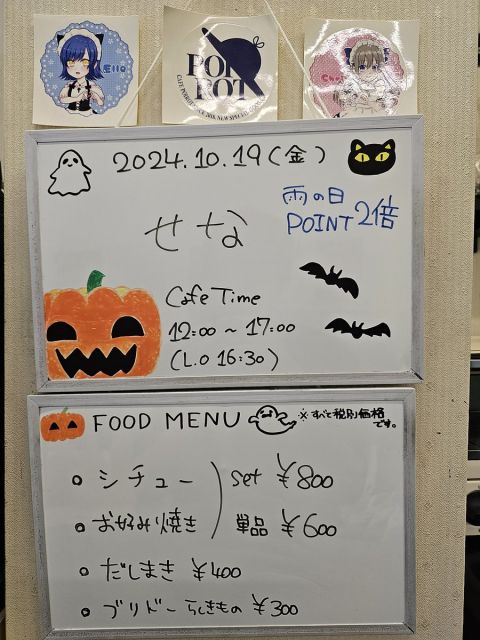 Ello
POP
POT
2024.10.19(金)
せな
雨の日
POINT 2倍
Cafe Time
12:00 ~ 17:00
(L.O 16:30)
FOOD MENU
※すべて税別価格
です。
シチュー
set ¥800
お好み焼き
単品 ¥600
だしまき ¥400
ブリトーらしきもの ¥300